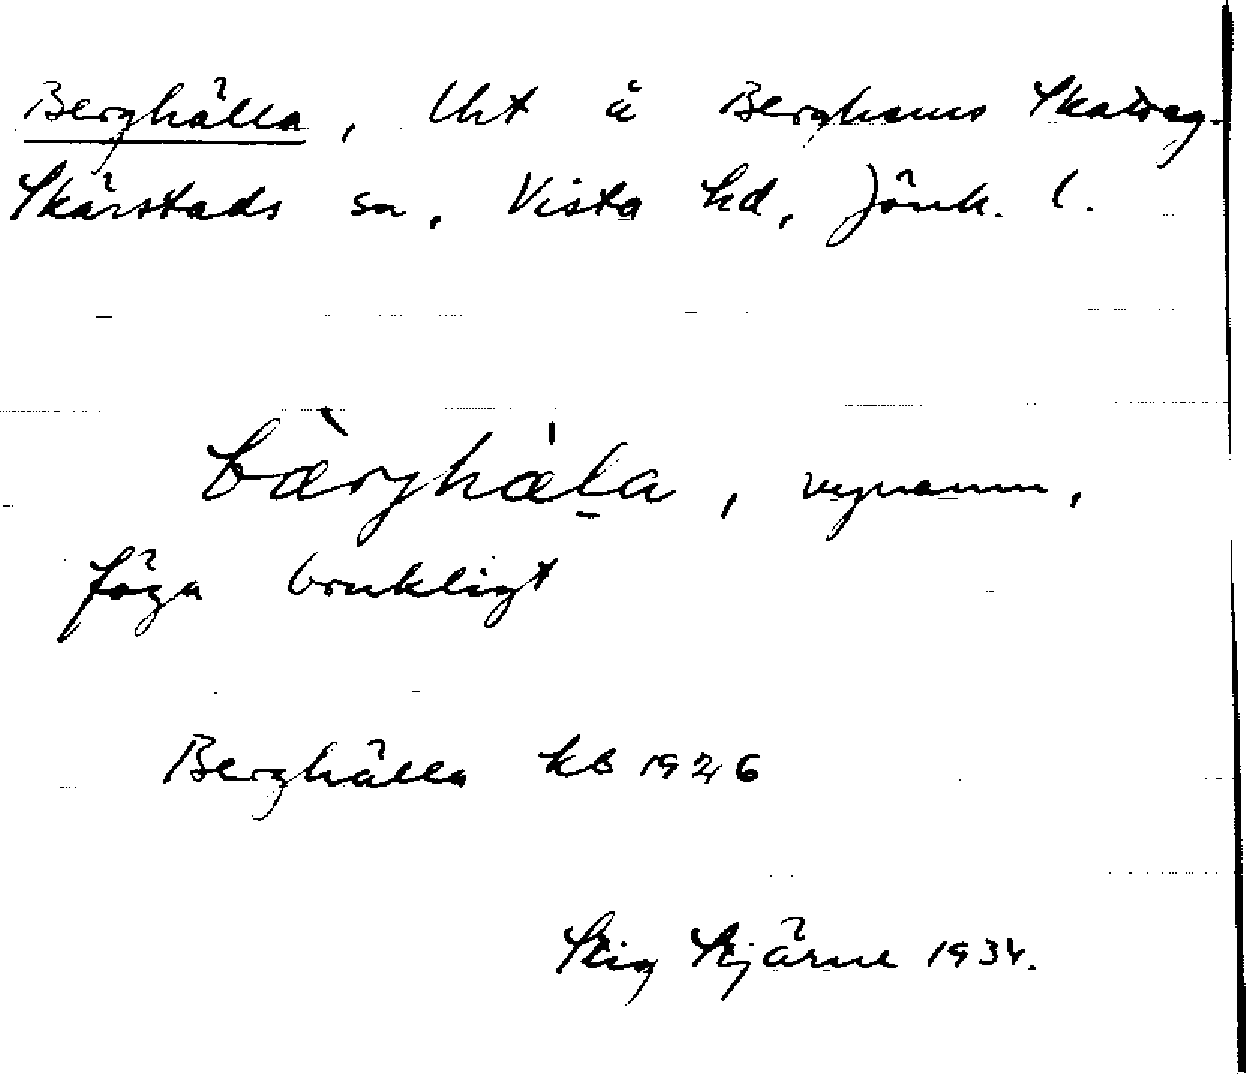 Berghälla, Uht å Berghems Skatteg.
Skärstads sn, Vista hd, Jönk. l.
bàrjhæ̀la, nynamn,
föga brukligt
Berghälla kb 1926
Stig Stjärne 1934.